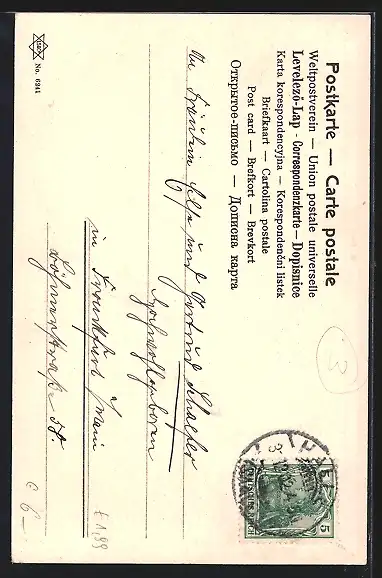 Postkarte — Carte postale
Weltpostverein — Union postale universelle
Levelező-Lap - Correspondenzkarte — Dopisnice
Karta korespondencyjna — Korespondenční lístek
Briefkaart — Cartolina postale
Post card — Brefkort — Brevkort
Открытое-письмо — Дописна карта
An Fräulein Elsa und Gertrud Schaefer
in Frankfurt a/Main
58.
No. 6241
5
DEUTSCHES REICH
3
E 1,99